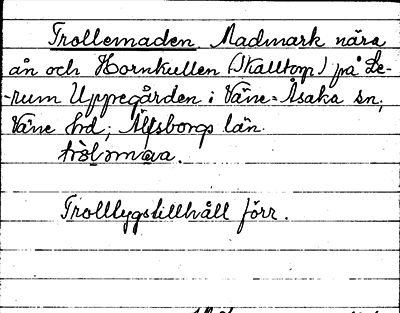 Trollemaden. Madmark nära
ån och Hornkullen (Skalltorp) på Le-
-rum Uppregården i Väne-Åsaka sn,
Väne hd; Älfsborgs län.

Trolltygstillhåll förr.